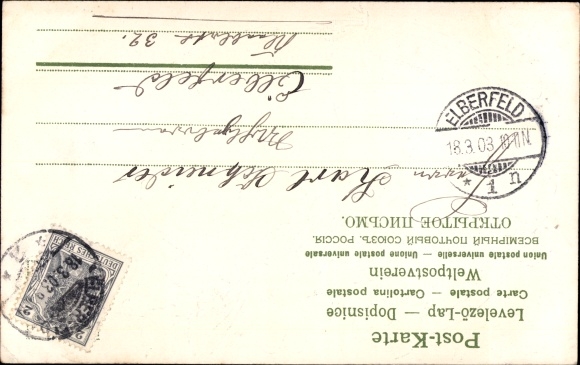 Post-Karte
Levelező-Lap — Dopisnice
Carte postale — Cartolina postale
Weltpostverein
Union postale universelle — Unione postale universale
ВСЕМІРНЫЙ ПОЧТОВЫЙ СОЮЗЪ. РОССІЯ.
ОТКРЫТОЕ ПИСЬМО.
Herrn Karl Schneider
Elberfeld
32.
ELBERFELD
18.3.03
* 1 n
DEUTSCHES REICH
2 2
18.3.03